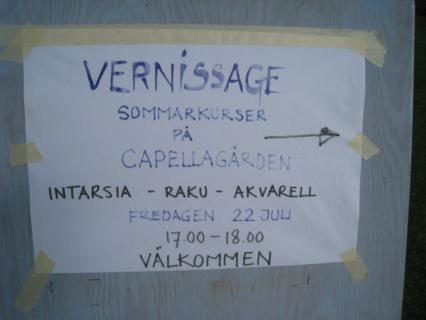 VERNISSAGE
SOMMARKURSER
PÅ
CAPELLAGÅRDEN
INTARSIA - RAKU - AKVARELL
FREDAGEN 22 JULI
17.00 - 18.00
VÄLKOMMEN